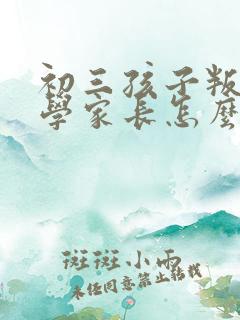 初三孩子叛
學家长怎麼
斑斑小雨
未经同意禁止转载